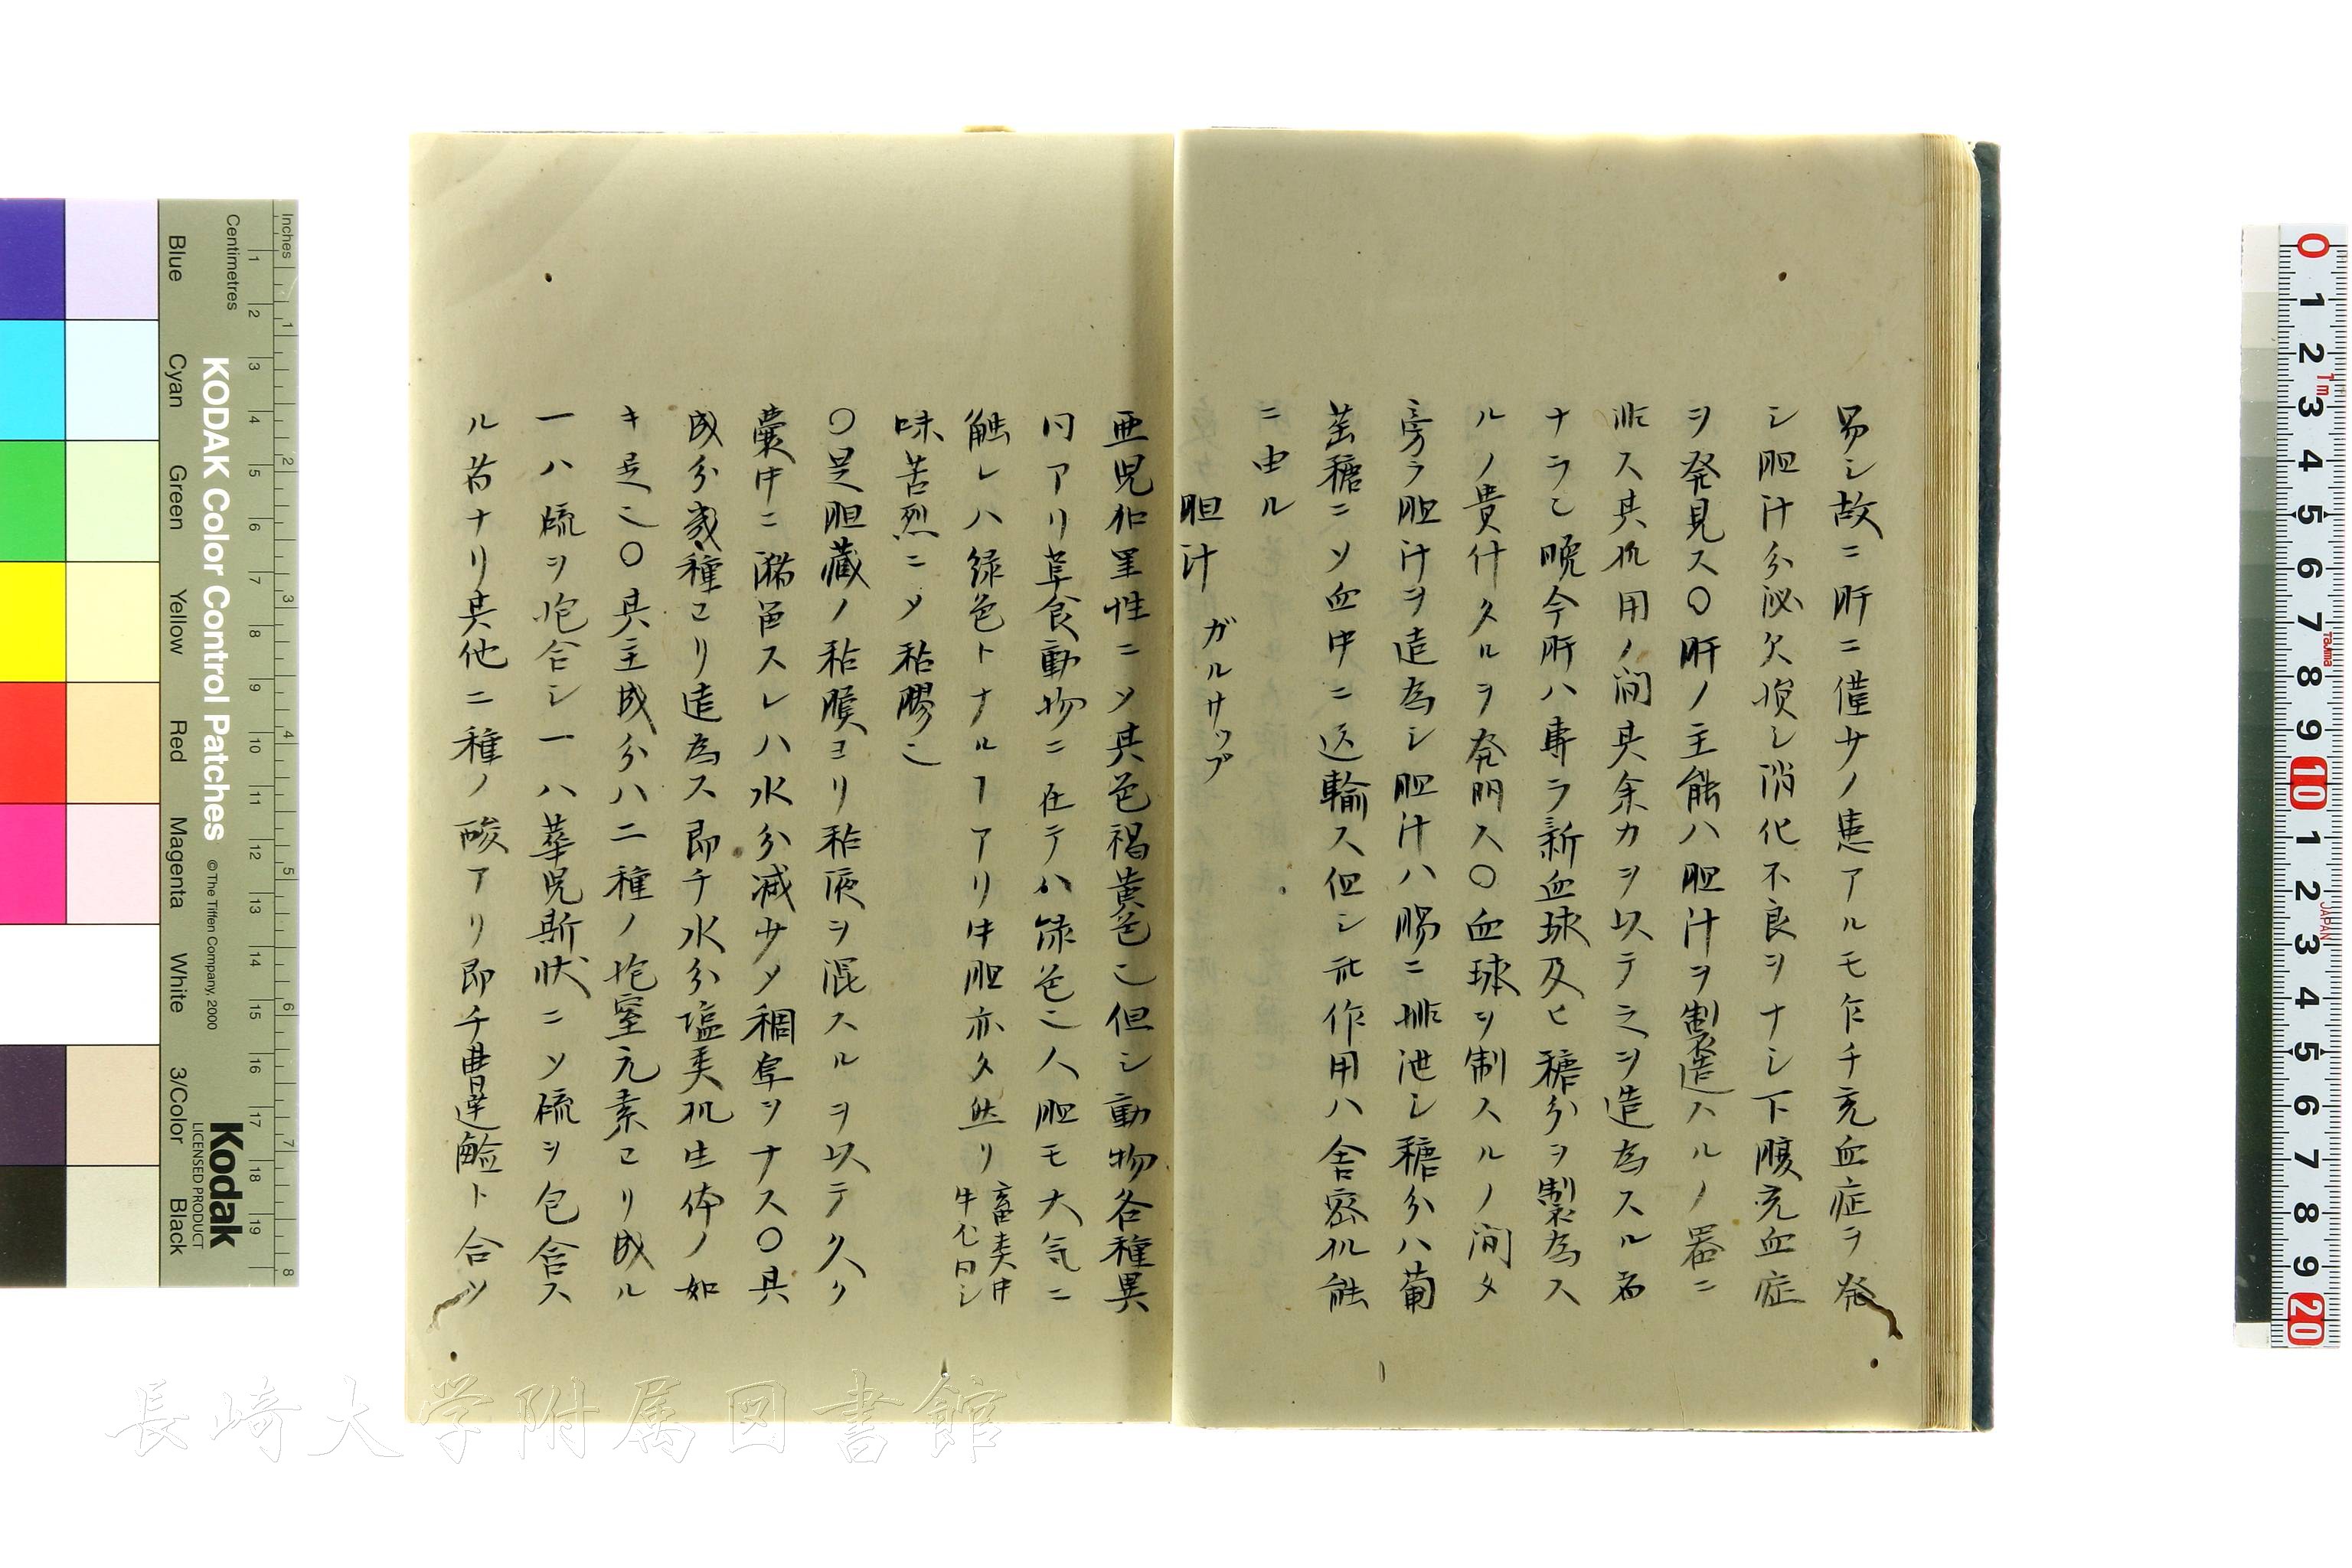 易シ故ニ肝ニ僅少ノ患アルモ乍チ充血症ヲ発
シ胆汁分泌欠損シ消化不良ヲナシ下腹充血症
ヲ発見ス〇肝ノ主能ハ胆汁ヲ製造スルノ器ニ
非ス其机用ノ間其余力ヲ以テ之ヲ造為スル者
ナラン晩今肝ハ専ラ新血球及ヒ糖分ヲ製為ス
ルノ貴什タルヲ発明ス〇血球ヲ制スルノ間タ
旁ラ胆汁ヲ造為シ胆汁ハ腸ニ排泄シ糖分ハ葡
萄糖ニソ血中ニ送輸ス但シ此作用ハ舎密机能
ニ由ル
胆汁 ガルサップ
亜児加里性ニソ其色褐黄色也但シ動物各種異
同アリ草食動物ニ在テハ緑色也人胆モ大気ニ
触レハ緑色トナルヿアリ牛胆亦タ然リ 畜类中
牛化同シ
味苦烈ニメ粘膠也
〇是胆蔵ノ粘膜ヨリ粘液ヲ混スルヲ以テ久ク
嚢中ニ瀦畄スレハ水分减少メ稠厚ヲナス〇其
成分幾種ヨリ造為ス即チ水分塩类机生体ノ如
キ是也〇其主成分ハ二種ノ抱窒元素ヨリ成ル
一ハ硫ヲ抱合シ一ハ華児斯状ニソ硫ヲ包含ス
ル者ナリ其他二種ノ酸アリ即チ曹達鹼ト合ソ
KODAK Color Control Patches
©The Tiffen Company, 2000
Kodak
LICENSED PRODUCT
Inches
Centimetres
Blue
Cyan
Green
Yellow
Red
Magenta
White
3/Color
Black
長崎大学附属図書館